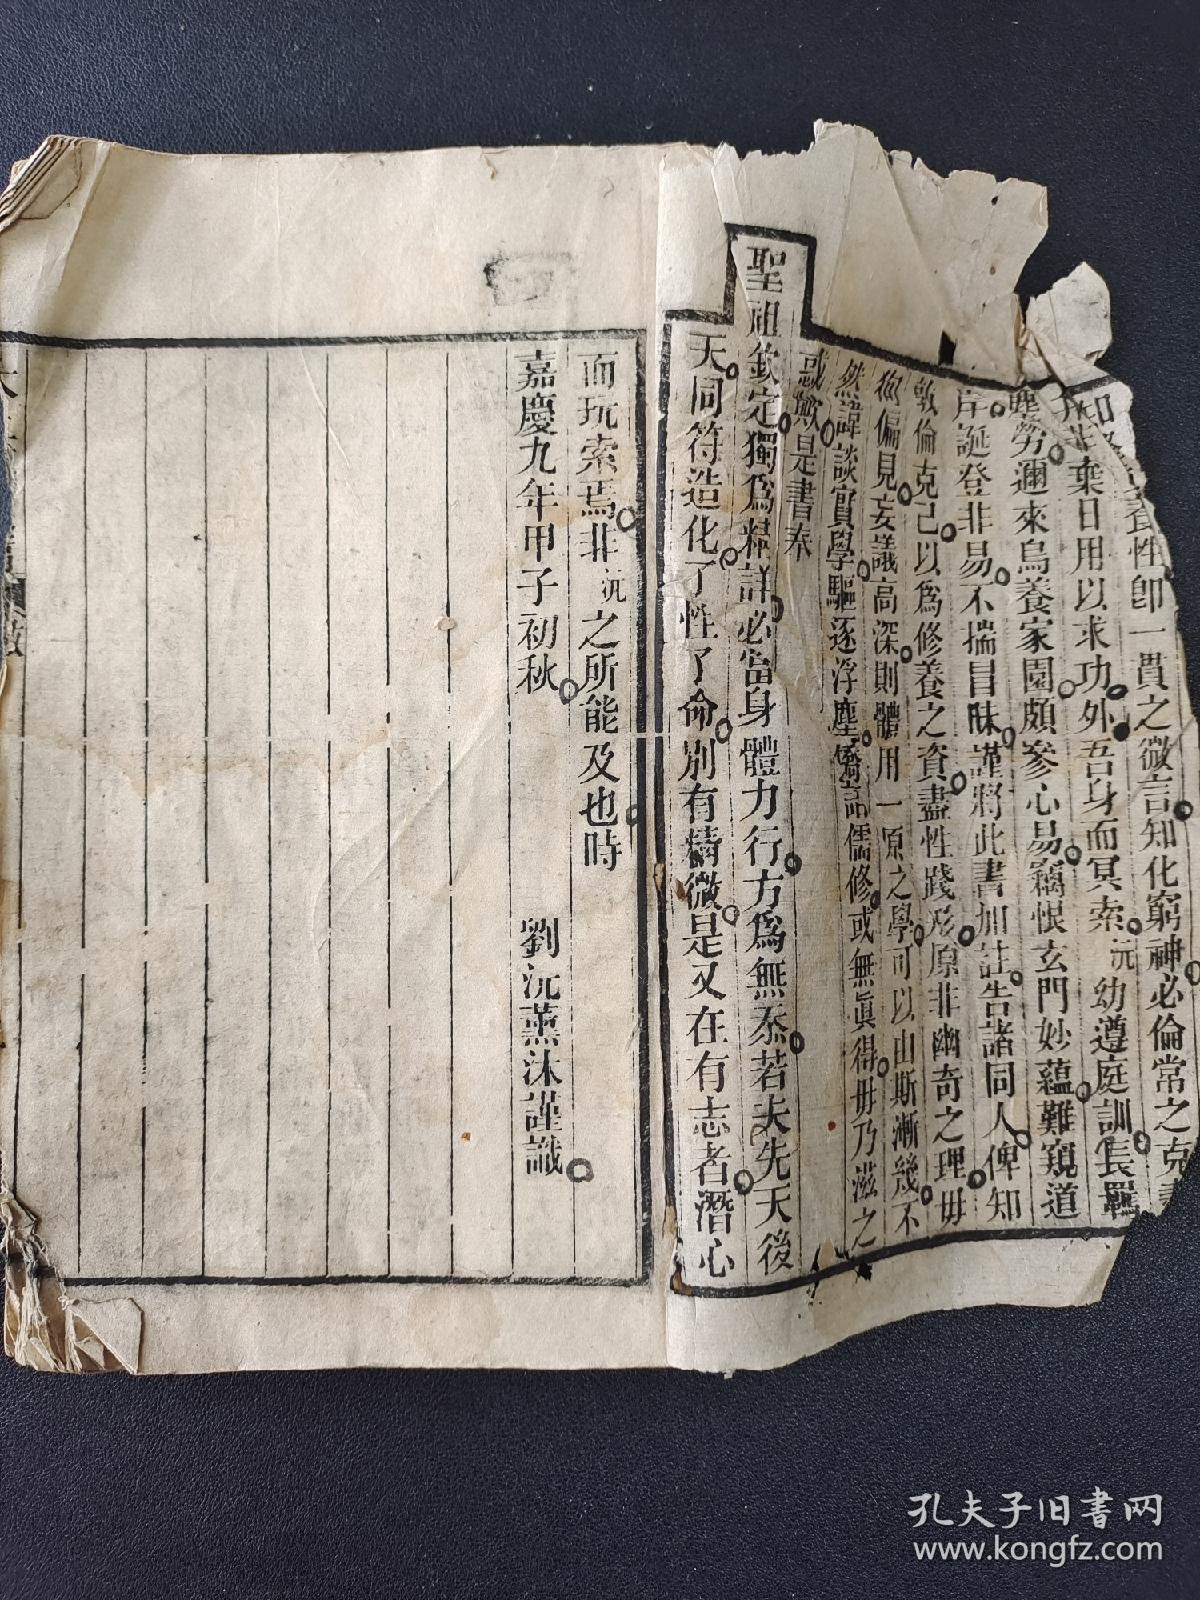 養性即一貫之微言知化窮神必倫常之克
棄日用以求功外吾身而冥索沅幼遵庭訓長羈
塵勞邇來烏養家園頗參心易竊恨玄門妙蘊難窺道
岸誕登非易不揣目昧謹將此書加註告諸同人俾知
敦倫克己以為修養之資盡性踐形原非幽奇之理毋
狥偏見妄議高深則體用一原之學可以由斯漸幾不
然諱談實學驅逐浮塵儒修或無眞得毋乃滋之
惑歟是書奉
聖祖欽定獨為精詳必當身體力行方為無忝若夫先天後
天同符造化了性了命別有精微是又在有志者潛心
而玩索焉非沅之所能及也時
嘉慶九年甲子初秋 劉沅薰沐謹識
孔夫子旧书网
www.kongfz.com